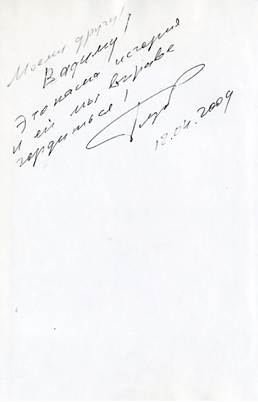 Моему другу!
Вадиму!
Это наша история
и ей мы вправе
гордиться!
12.04.2009